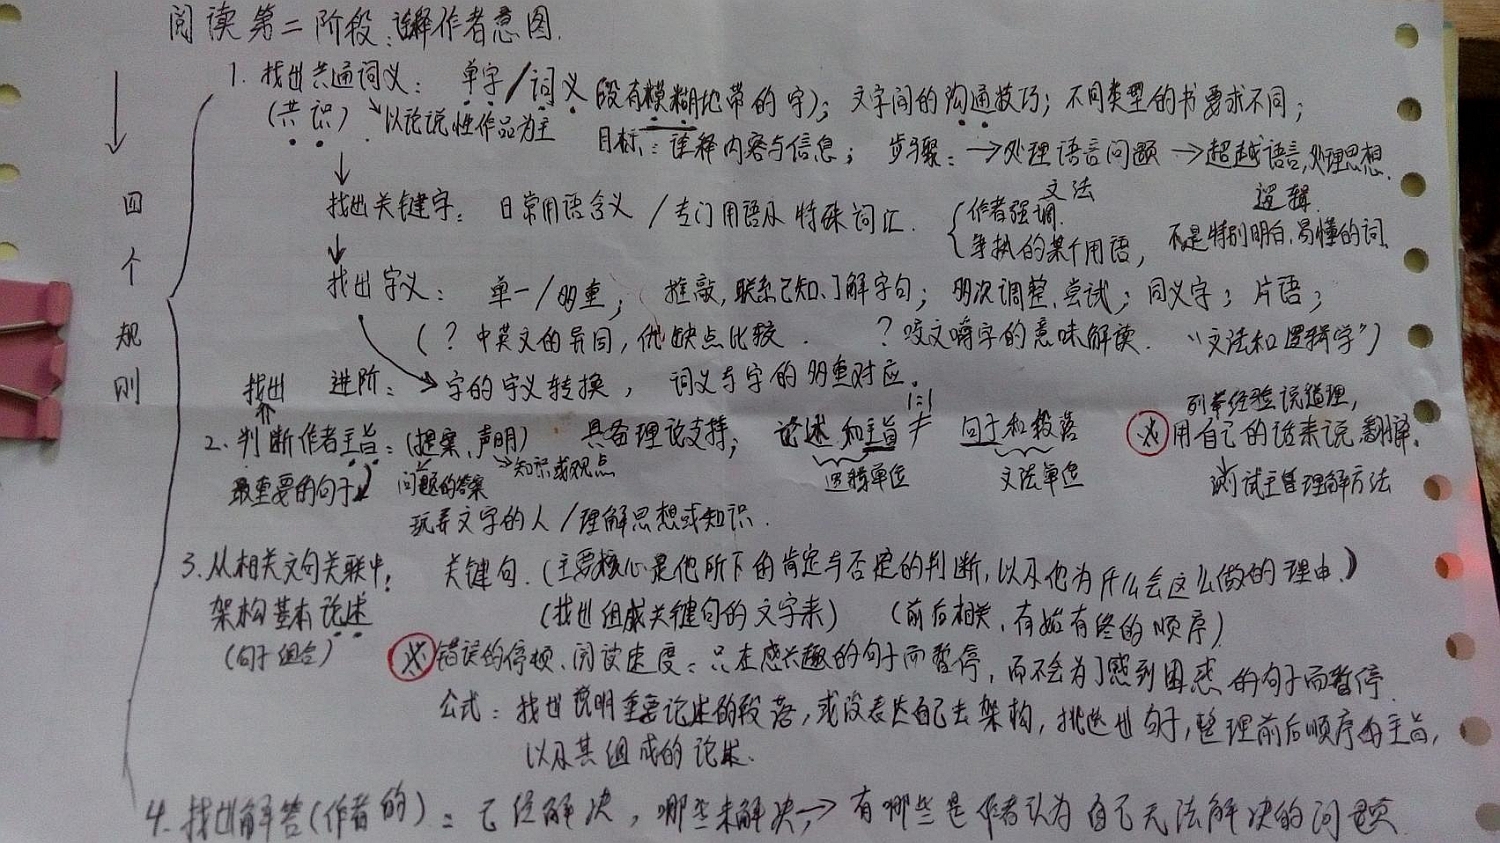 阅读第二阶段：诠释作者意图.
1. 找出共通词义： 单字/词义 (没有模糊地带的字)； 文字间的沟通技巧； 不同类型的书要求不同；
(共识) 以论说性作品为主 目标：诠释内容与信息； 步骤：→处理语言问题→超越语言,处理思想.
文法 逻辑
找出关键字： 日常用语含义 / 专门用语及特殊词汇. { 作者强调.
争执的某个用语， 不是特别明白、易懂的词
找出字义： 单一/多重； 推敲,联系已知、了解字句； 多次调整、尝试； 同义字； 片语；
(？ 中英文的异同，优缺点比较. ？咬文嚼字的意味解读. “文法和逻辑学”)
进阶： 字的字义转换， 词义与字的多重对应.
四个规则
找出
2. 判断作者主旨：(提案、声明) 具备理论支持； 论述和主旨 1:1 ≠ 句子和段落 ※ 列举经验说道理，
用自己的话来说 翻译.
最重要的句子 问题的答案 →知识或观点 逻辑单位 文法单位 测试主旨理解方法
玩弄文字的人/理解思想或知识.
3. 从相关文句关联中； 关键句. (主要核心是他所下的肯定与否定的判断,以及他为什么会这么做的理由.)
架构基本论述 (找出组成关键句的文字来) (前后相关、有始有终的顺序)
(句子组合) ※ 错误的停顿、阅读速度：只在感兴趣的句子而暂停，而不会为了感到困惑的句子而暂停.
公式：找出说明重要论述的段落，或没表达自己去架构，挑选出句子，整理前后顺序的主旨，
以及其组成的论述.
4. 找出解答(作者的)：已经解决，哪些未解决，→有哪些是作者认为自己无法解决的问题.